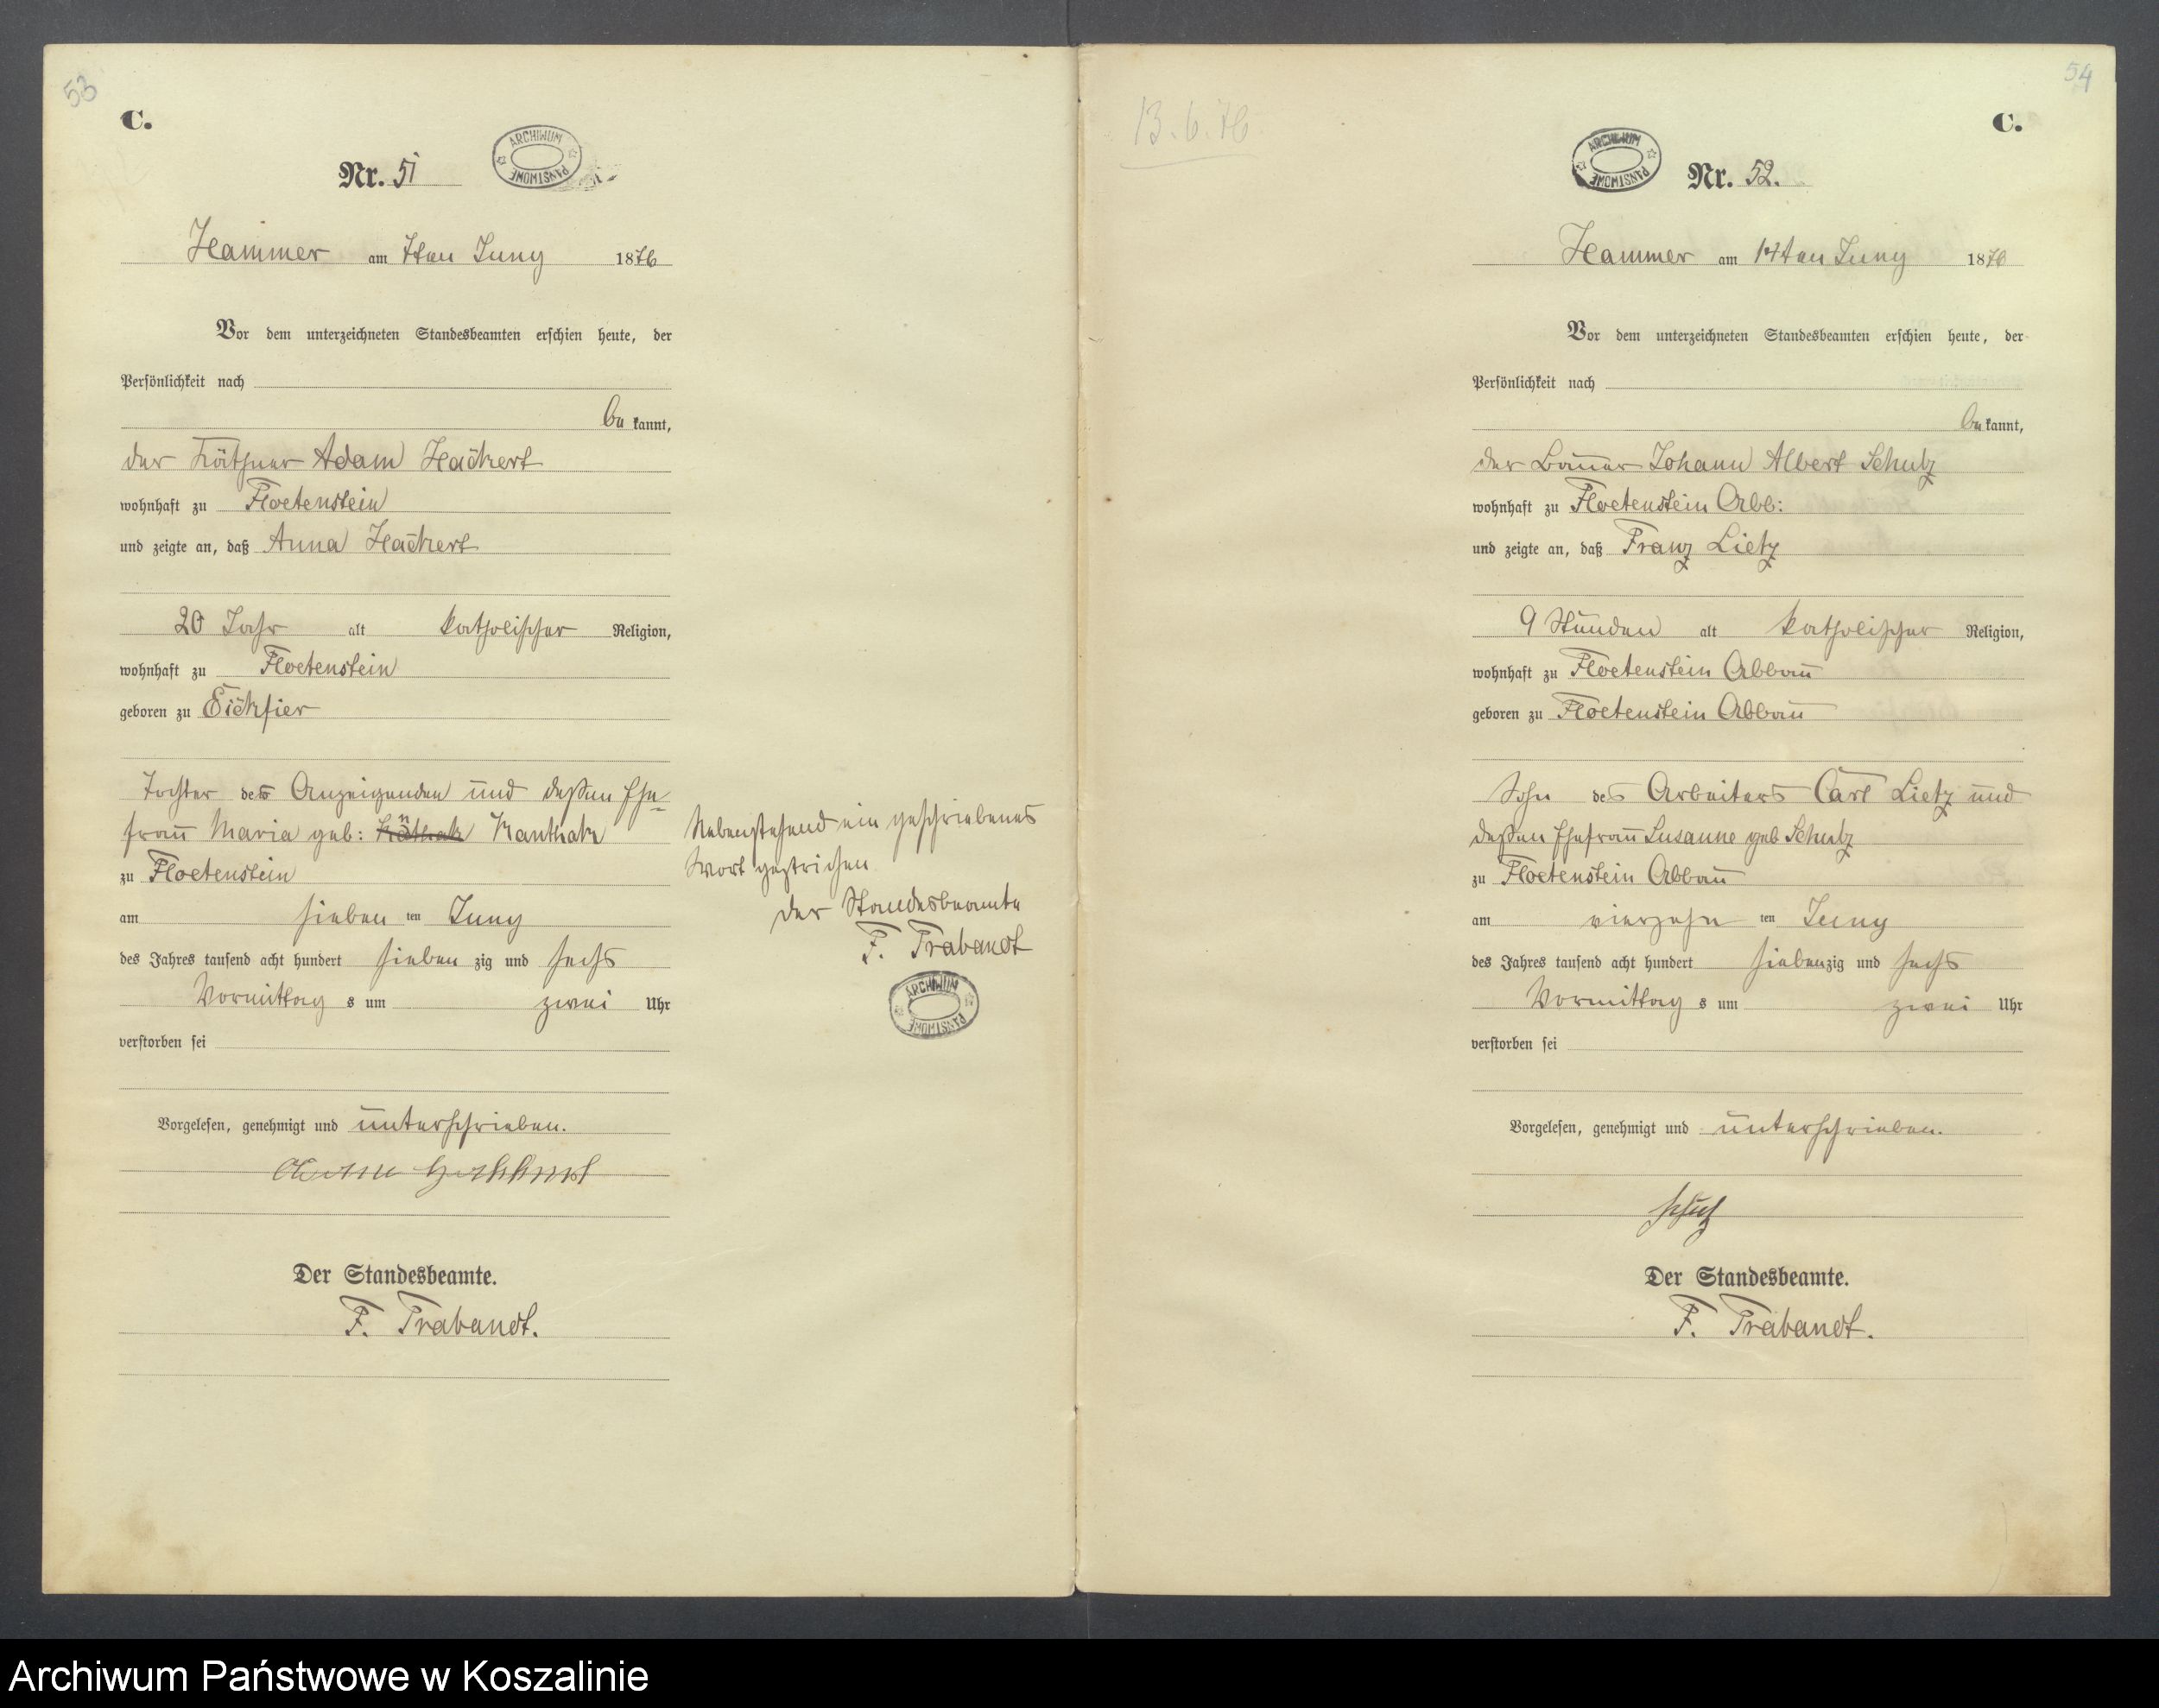 53
C.
ARCHIWUM PAŃSTWOWE
Nr. 51
Hammer am 7ten Juny 1876
Vor dem unterzeichneten Standesbeamten erschien heute, der
Persönlichkeit nach
be kannt,
der Käthner Adam Hackert
wohnhaft zu Floetenstein
und zeigte an, daß Anna Hackert
20 Jahr alt katholischer Religion,
wohnhaft zu Floetenstein
geboren zu Eickfier
Tochter des Anzeigenden und deßen Ehe=
frau Maria geb: Kanthak
zu Floetenstein
am sieben ten Juny
des Jahres tausend acht hundert sieben zig und sechs
Vormittag s um zwei Uhr
verstorben sei
Vorgelesen, genehmigt und unterschrieben.
Der Standesbeamte.
F. Trabandt.
Nebenstehend ein geschriebenes
Wort gestrichen
Der Standesbeamte
F. Trabandt
ARCHIWUM PAŃSTWOWE
13.6.76
54
C.
ARCHIWUM PAŃSTWOWE
Nr. 52.
Hammer am 14ten Juny 1876
Vor dem unterzeichneten Standesbeamten erschien heute, der
Persönlichkeit nach
be kannt,
der Bauer Johann Albert Schulz
wohnhaft zu Floetenstein Abb:
und zeigte an, daß Franz Lietz
9 Stunden alt katholischer Religion,
wohnhaft zu Floetenstein Abbau
geboren zu Floetenstein Abbau
Sohn des Arbeiters Carl Lietz und
deßen Ehefrau Susanne geb Schulz
zu Floetenstein Abbau
am vierzehn ten Juny
des Jahres tausend acht hundert sieben zig und sechs
Vormittag s um zwei Uhr
verstorben sei
Vorgelesen, genehmigt und unterschrieben.
Der Standesbeamte.
F. Trabandt.
Archiwum Państwowe w Koszalinie